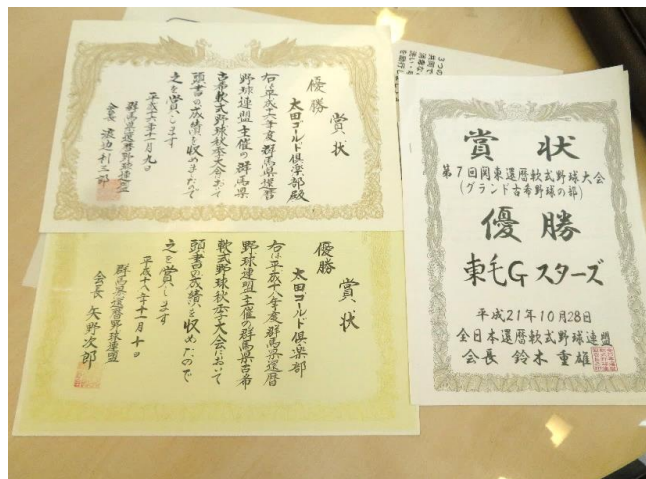 賞状
優勝
太田ゴールド倶楽部殿
右は平成十六年度群馬県還暦
野球連盟主催の群馬県
古希軟式野球秋季大会において
頭書の成績を収めましたので
之を賞します
平成十六年十一月九日
群馬県還暦野球連盟
会長 渡辺利三郎
賞状
優勝
太田ゴールド倶楽部
右は平成十八年度群馬県還暦
野球連盟主催の群馬県古希
軟式野球秋季大会において
頭書の成績を収めたので
之を賞します
平成十八年十一月十日
群馬県還暦野球連盟
会長 矢野次郎
賞状
第7回関東還暦軟式野球大会
(グランド古希野球の部)
優勝
東毛Gスターズ
平成21年10月28日
全日本還暦軟式野球連盟
会長 鈴木重雄